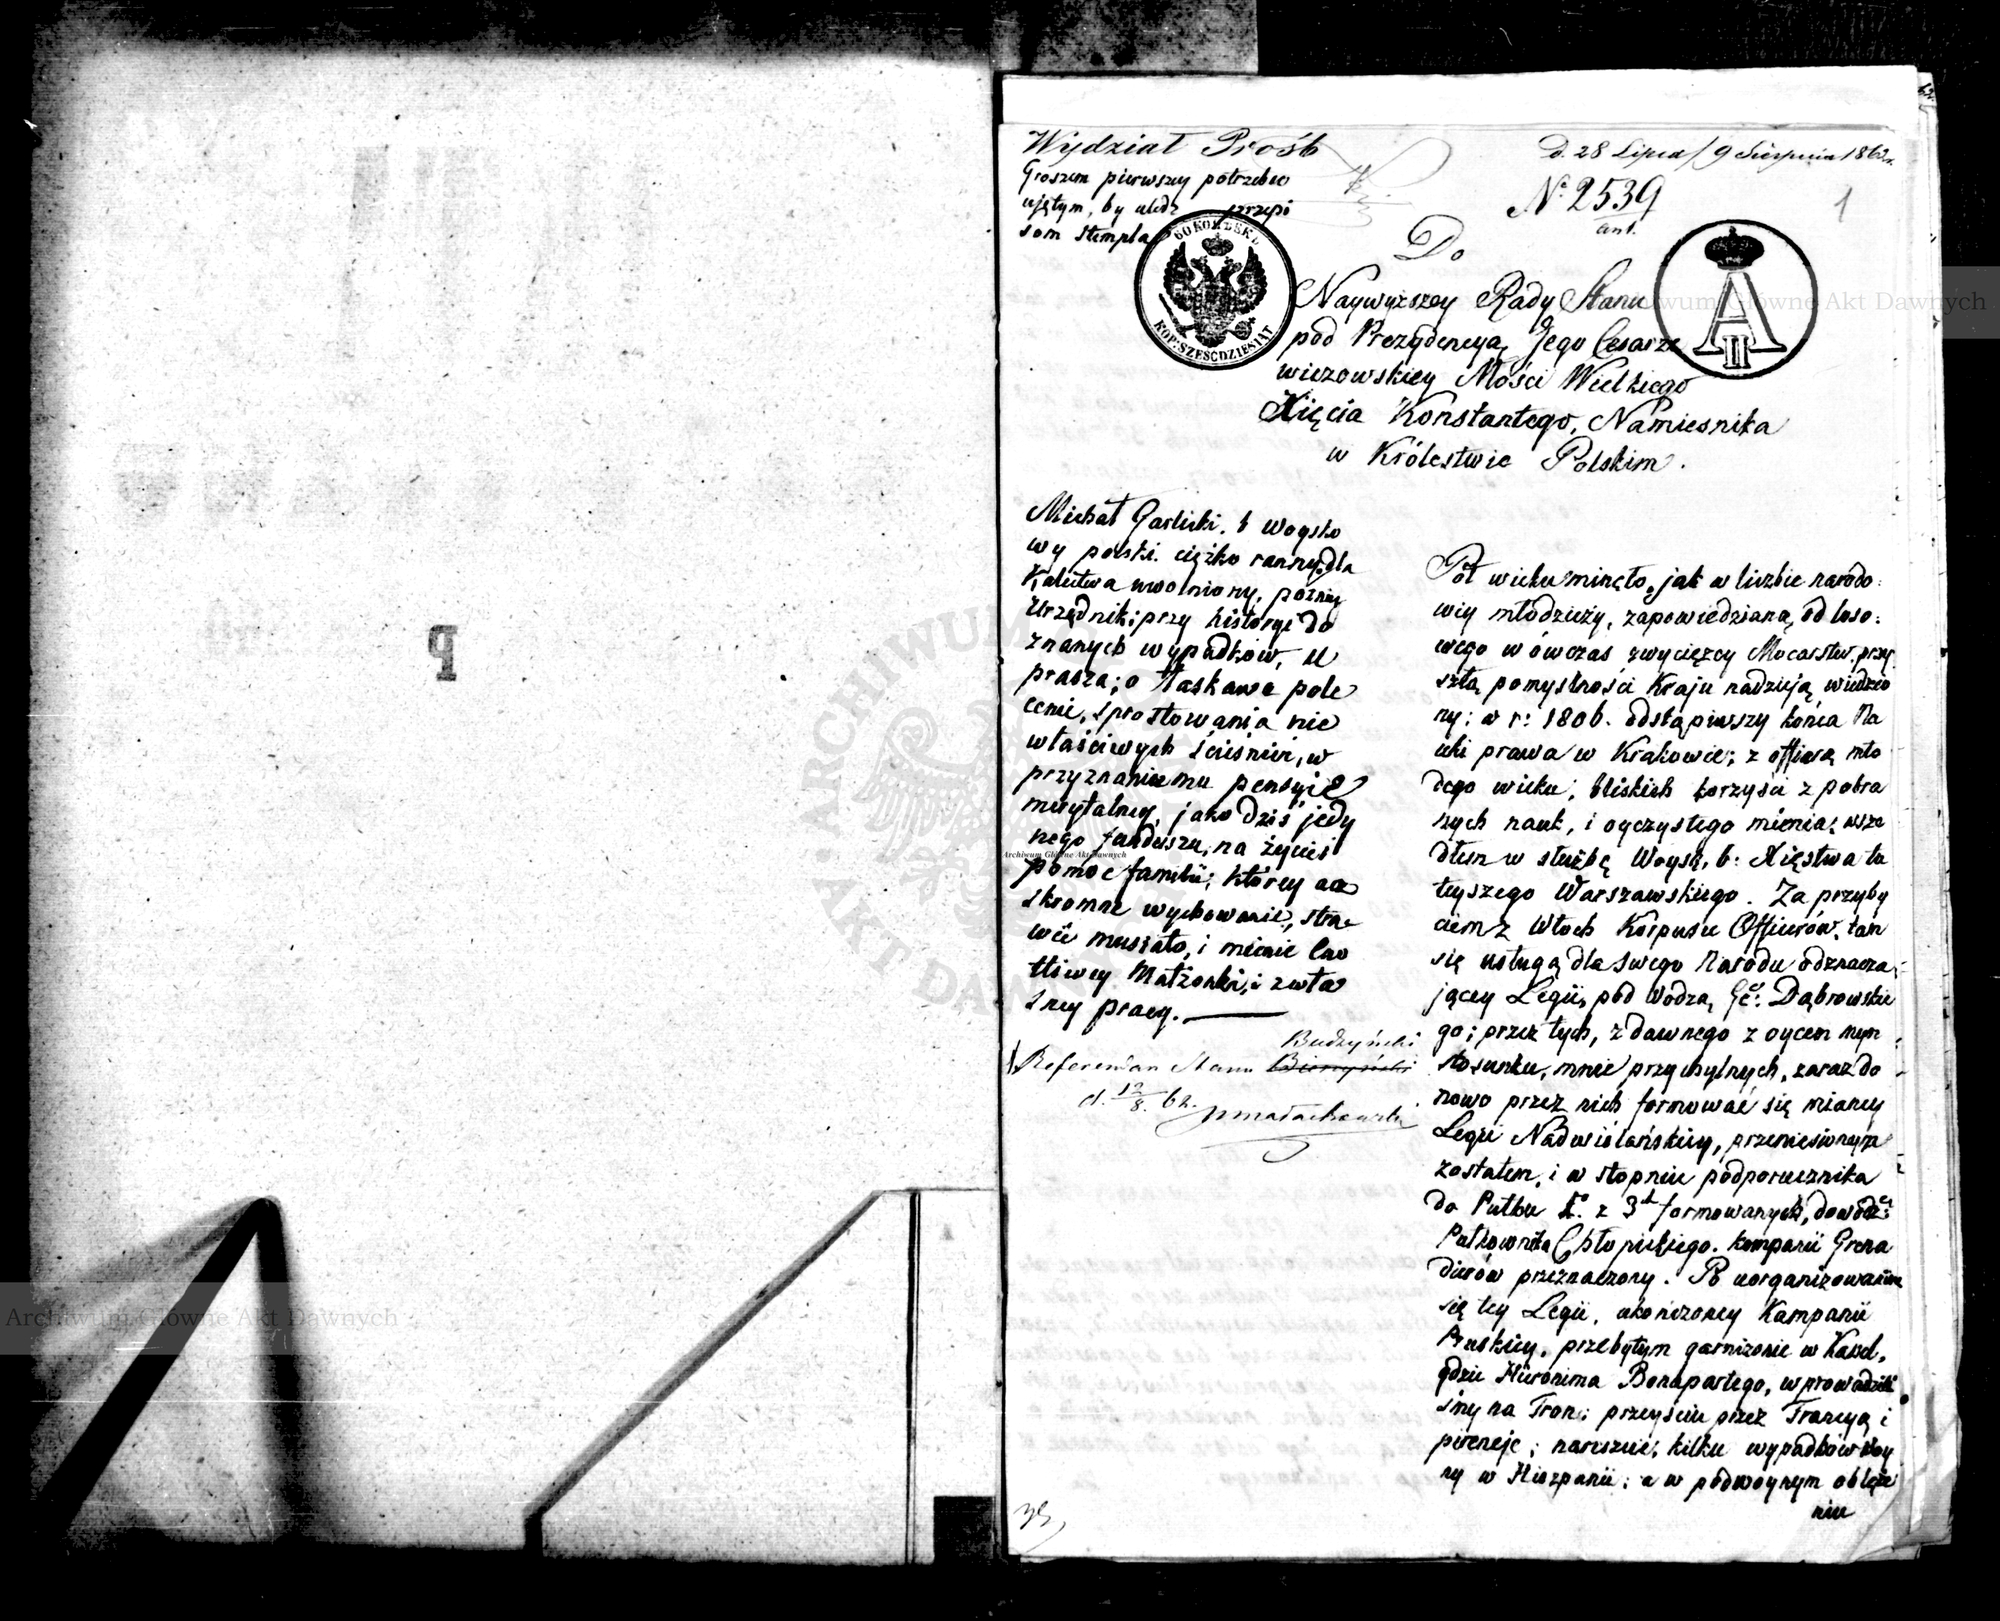 Wydział Próśb
Groszem pierwszey potrzebie
ujętym, by uledz przepi
som stempla
d. 28 Lipca / 9 Sierpnia 1862 r.
N° 2539
ant.
1
60 КОПѢЕКЪ
KOP: SZESĆDZIESIĄT
A II
Do
Naywyższey Rady Stanu
pod Prezydencyą Jego Cesarze
wiczowskiey Mości Wielkiego
Xięcia Konstantego, Namiesnika
w Królestwie Polskim.
Michał Garlicki. b woysko
wy polski. ciężko ranny, dla
Kalectwa uwolniony, pozniey
Urzędnik; przy historyi do
znanych wypadków, u
prasza; o łaskawe pole
cenie, sprostowania nie
właściwych ścieśnień, w
przyznaniu mu pensyi e
merytalney, jako dziś jedy
nego funduszu, na życie i
pomoc familii; którey na
skromne wychowanie, stra
wić musiało, i mienie
Małżonki, i z wła
sney pracy.
Budzyński
Referendarz Stanu
d. 12/8. 62.
Pół wieku minęło, jak w liczbie narodo:
wey młodzieży, zapowiedzianą, od loso:
wego w ówczas zwycięzcy Mocarstw, przy
szłą pomyslności Kraju nadzieją wiedzio
ny; w r: 1806. odstąpiwszy końca Na
uki prawa w Krakowie; z offiarą mło
dego wieku, bliskich korzyści z pobra
nych nauk, i oyczystego mienia; wsze
dłem w służbę Woysk, b: Xięstwa tu
teyszego Warszawskiego. Za przyby
ciem z Włoch Korpusu Officerów, tam
się usługą dla swego Narodu odznacza,
jącey Legii, pod Wodzą Dąbrowskie
go; przez tych, z dawnego z oycem mym
stosunku, mnie przychylnych, zaraz do
nowo przez nich formować się mianey
Legii Nadwiślańskiey, przeniesionym
zostałem, i w stopniu podporucznika
do Pułku z 3ch formowanych, dowódz:
Pułkownika Chłopickiego. kompanii Grena
dierów przeznaczony. Po uorganizowaniu
się tey Legii, ukończoney Kampanii
Pruskiey, przebytym garnizonie w Kassel,
gdzie Hieronima Bonapartego, wprowadzili
śmy na Tron; przeyściu przez Francyą i
pireneje; nareszcie, kilku wypadków Woy
ny w Hiszpanii; a w podwoynym oblęże
niu
Archiwum Główne Akt Dawnych
Archiwum Główne Akt Dawnych
Archiwum Główne Akt Dawnych
ARCHIWUM
AKT DAWNYCH